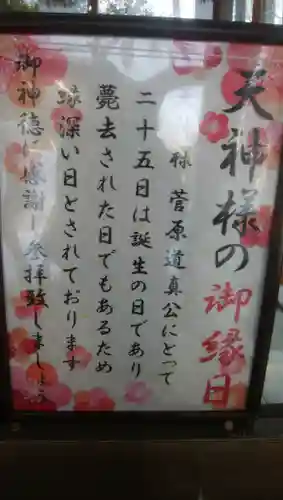 天神様の御縁日
様 菅原道真公にとって
二十五日は誕生の日であり
薨去された日でもあるため
縁深い日とされております
御神徳に感謝し参拝致しましょう